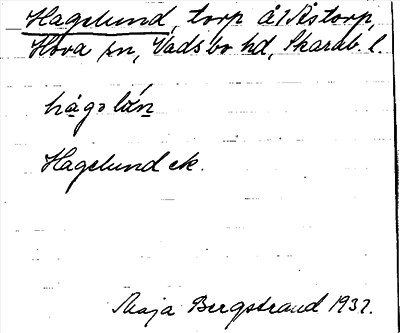 Hagelund, torp å Åstorp,
Hova sn, Vadsbo hd, Skarab. l.
Hagelund ek.
Maja Bergstrand 1937.